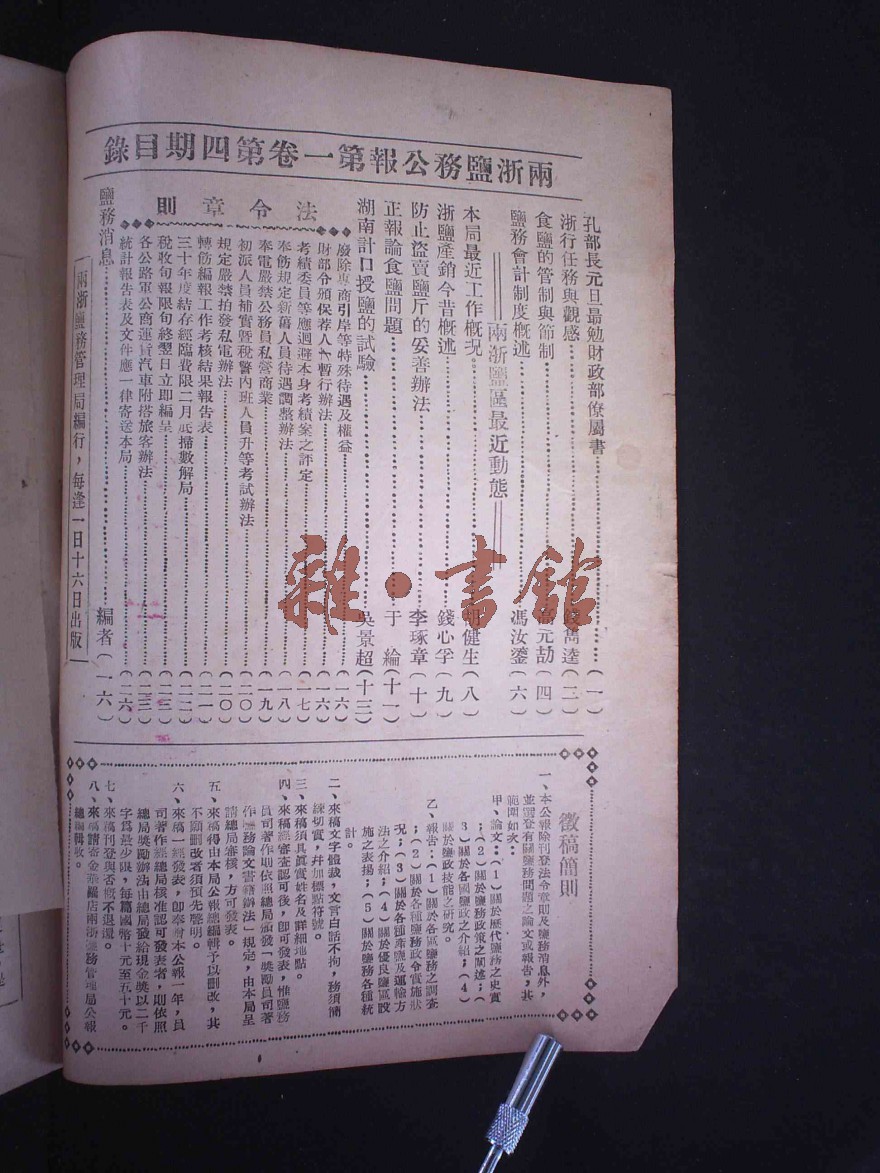 兩浙鹽務公報第一卷第四期目錄
孔部長元旦最勉財政部僚屬書……(一)
浙行任務與觀感……錢雋逵(二)
食鹽的管制與節制……元劼(四)
鹽務會計制度概述……馮汝鎏(六)
兩浙鹽區最近動態
本局最近工作概況……胡健生(八)
浙鹽產銷今昔概述……錢心孚(九)
防止盜賣鹽斤的妥善辦法……李琢章(十)
正報論食鹽問題……于綸(十一)
湖南計口授鹽的試驗……吳景超(十三)
法令章則
廢除專商引岸等特殊待遇及權益……(一六)
財部令頒保荐人暫行辦法……(一六)
考績委員等應迴避本身考績案之評定……(一七)
奉飭規定新舊人員待遇調整辦法……(一八)
奉電嚴禁公務員私營商業……(一九)
初派人員補實暨稅警內班人員升等考試辦法……(二〇)
規定嚴禁拍發私電辦法……(二〇)
轉飭編報工作考核結果報告表……(二一)
三十年度結存經臨費限二月底掃數解局……(二二)
稅收旬報限旬終翌日立即編呈……(二三)
各公路軍公商運貨汽車附搭旅客辦法……(二三)
統計報告表及文件應一律寄送本局……(二六)
鹽務消息……編者(一六)
兩浙鹽務管理局編行,每逢一日十六日出版
徵稿簡則
一、本公報除刊登法令章則及鹽務消息外,
並刊登有關鹽務問題之論文或報告,其
範圍如次:
甲、論文:(1)關於歷代鹽務之史實
;(2)關於鹽務政策之闡述;(
3)關於各國鹽政之介紹;(4)
關於鹽政技能之研究。
乙、報告:(1)關於各區鹽務之調查
;(2)關於各種鹽務政令實施狀
況;(3)關於各種產鹽及運輸方
法之介紹;(4)關於優良鹽區設
施之表揚;(5)關於鹽務各種統
計。
二、來稿文字體裁,文言白話不拘,務須簡
練切實,并加標點符號。
三、來稿須具眞實姓名及詳細地點。
四、來稿經審查認可後,卽可發表,惟鹽務
員司著作則依照總局頒發「獎勵員司著
作鹽務論文書籍辦法」規定,由本局呈
請總局審核,方可發表。
五、來稿得由本局公報總編輯予以刪改,其
不願刪改者須預先聲明。
六、來稿一經發表,卽奉酬本公報一年,員
司著作經總局核准認可發表者,則依照
總局獎勵辦法由總局發給現金獎以二千
字爲最少限,每篇國幣十元至五十元。
七、來稿刊登與否概不退還。
八、來稿請寄金華鐵店兩浙鹽務管理局公報
總編輯收。
雜·書館